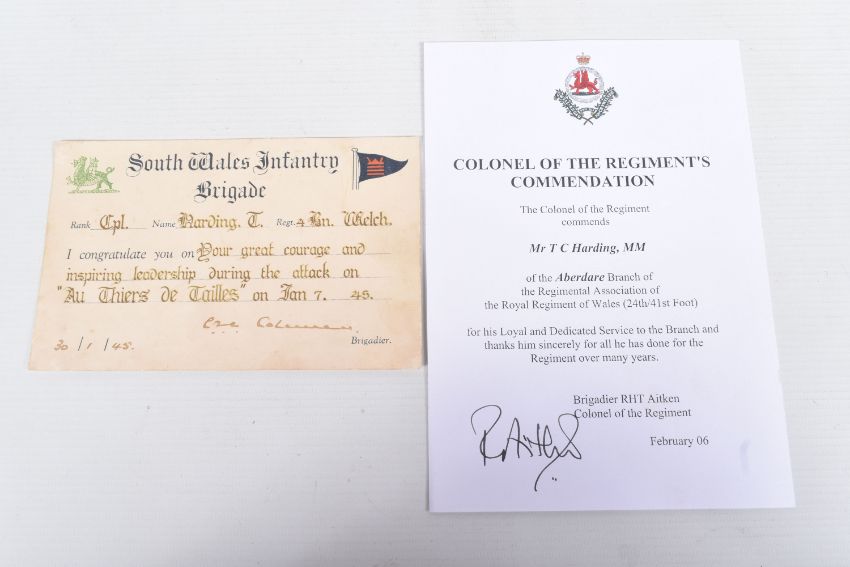 South Wales Infantry
Brigade
Rank Cpl. Name Harding. T. Regt. 4 Bn. Welch.
I congratulate you on Your great courage and
inspiring leadership during the attack on
"Au Thiers de Tailles" on Jan 7. 45.
Brigadier.
30/1/45.
COLONEL OF THE REGIMENT'S
COMMENDATION
The Colonel of the Regiment
commends
Mr T C Harding, MM
of the Aberdare Branch of
the Regimental Association of
the Royal Regiment of Wales (24th/41st Foot)
for his Loyal and Dedicated Service to the Branch and
thanks him sincerely for all he has done for the
Regiment over many years.
Brigadier RHT Aitken
Colonel of the Regiment
February 06